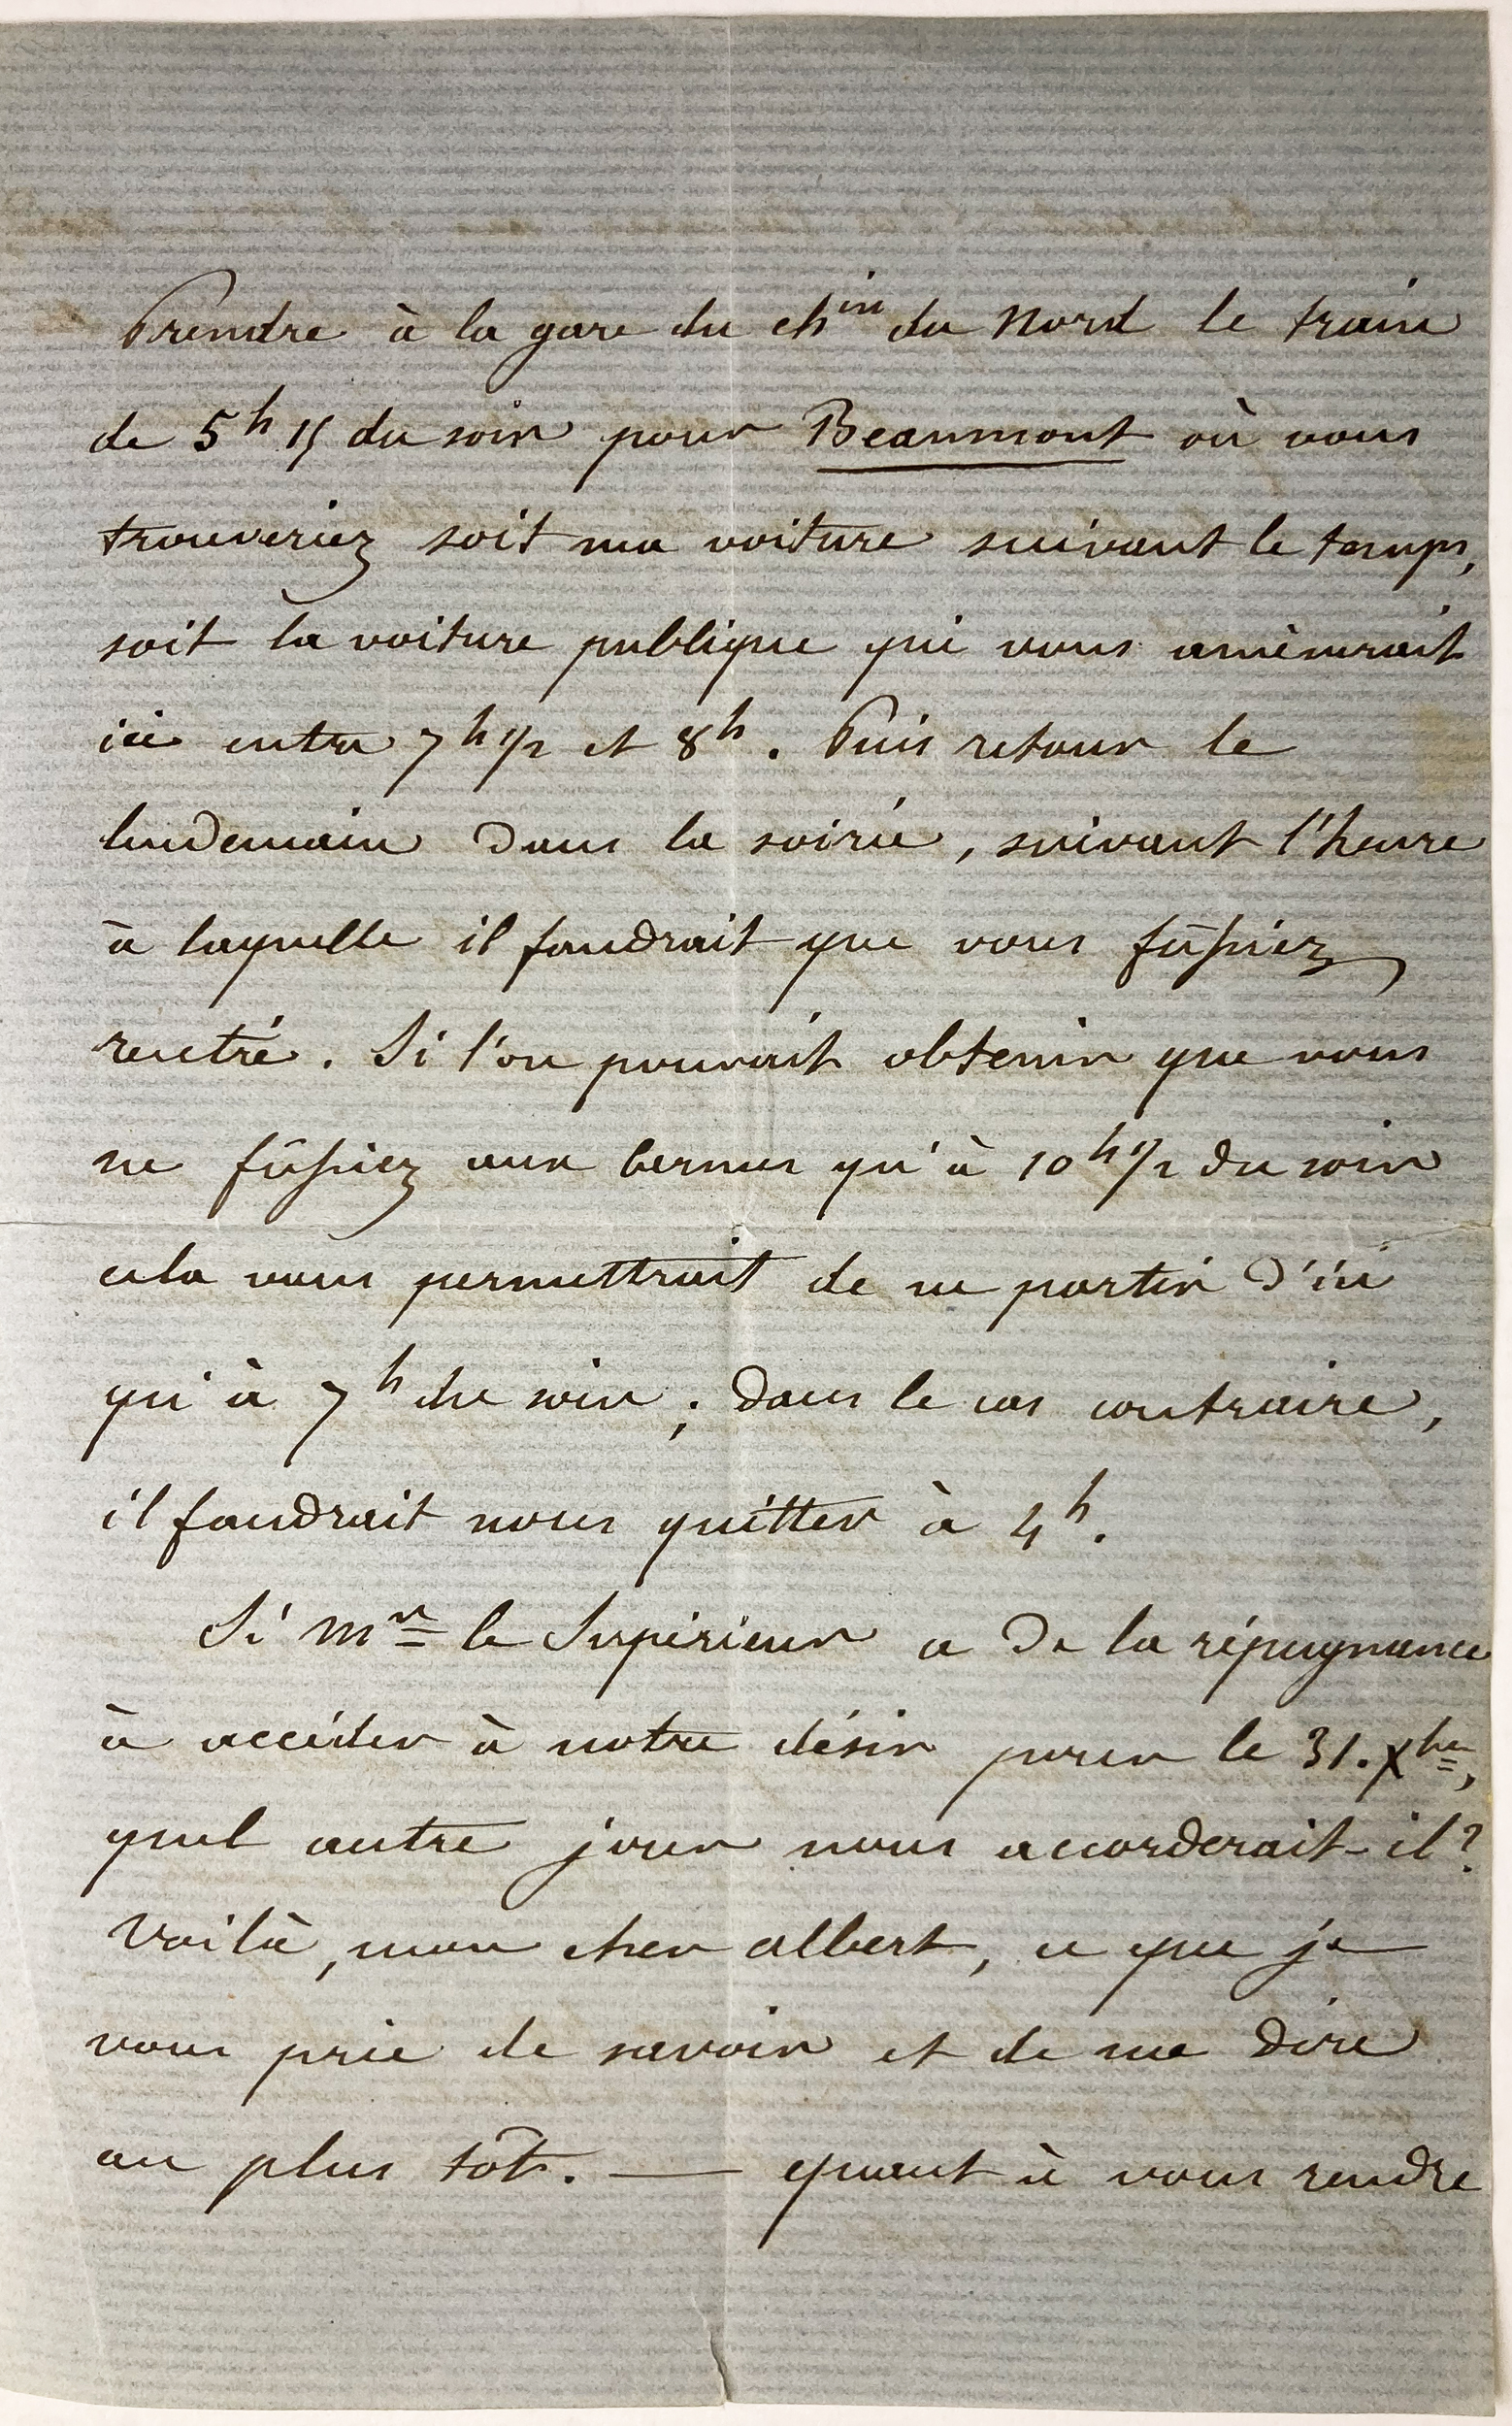 Prendre à la gare du ch<sup>in</sup> du Nord le train
de 5<sup>h</sup> 15 du soir pour Beaumont où vous
trouveriez soit ma voiture suivant le temps,
soit la voiture publique qui vous amènerait
ici entre 7<sup>h</sup> 1/2 et 8<sup>h</sup>. Puis retour le
lendemain dans la soirée, suivant l'heure
à laquelle il faudrait que vous fûssiez
rentré. Si l'on pouvait obtenir que vous
ne fûssiez aux Carmes qu'à 10<sup>h</sup> 1/2 du soir
cela vous permettrait de ne partir d'ici
qu'à 7<sup>h</sup> du soir ; dans le cas contraire,
il faudrait nous quitter à 4<sup>h</sup>.
Si M<sup>r</sup> le Supérieur a de la répugnance
à accéder à notre désir pour le 31. X<sup>bre</sup>,
quel autre jour nous accorderait-il ?
Voilà, mon cher Albert, ce que je
vous prie de savoir et de me dire
au plus tôt. — quant à vous rendre